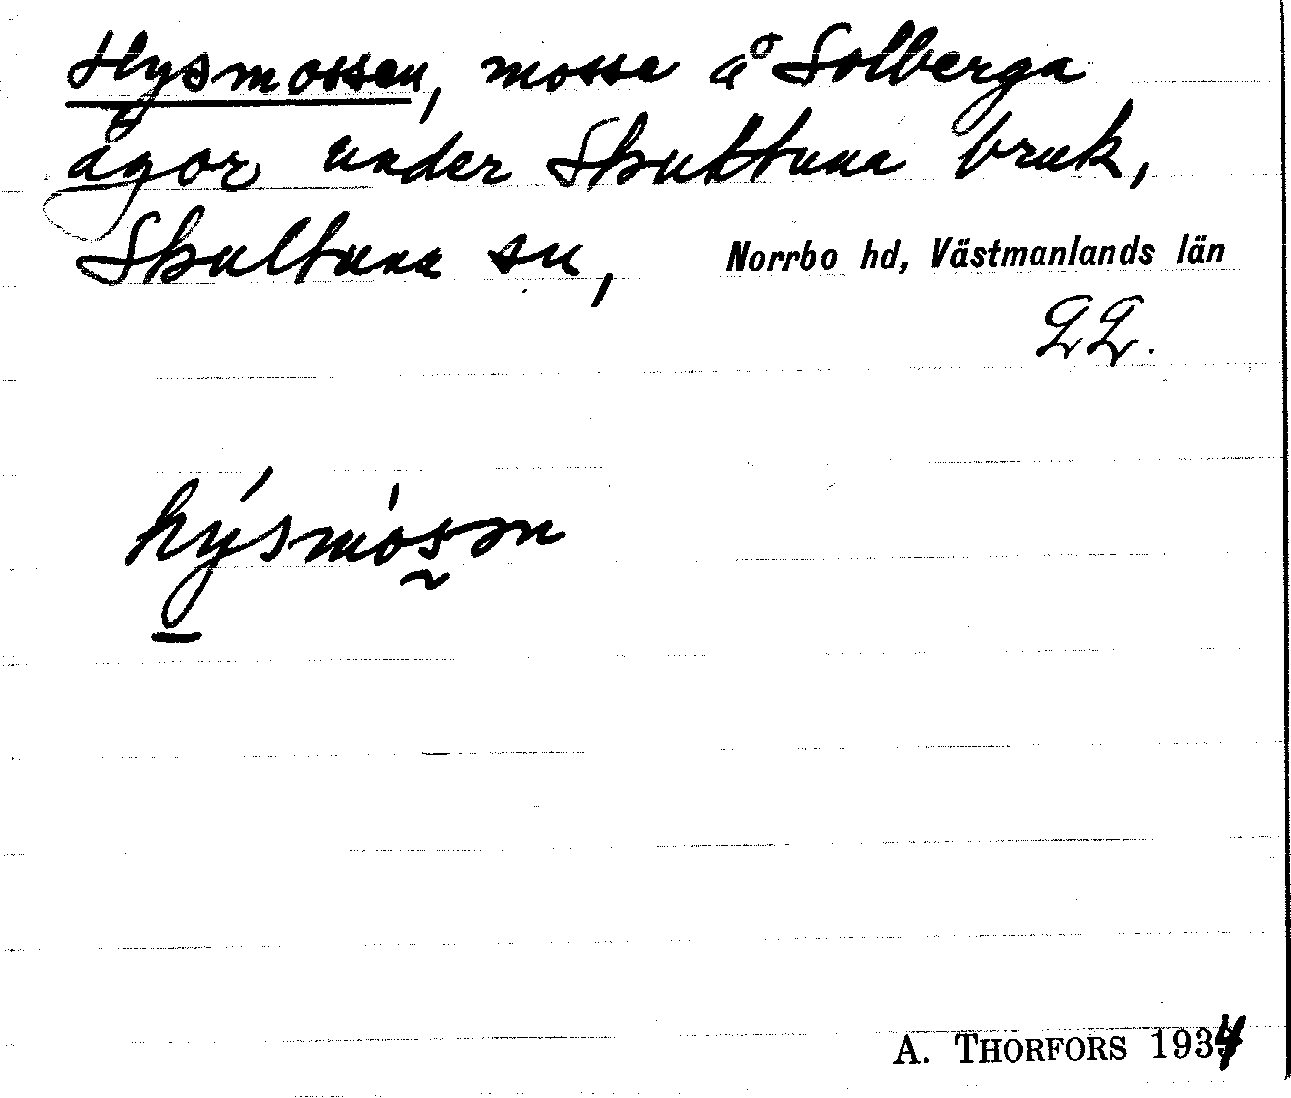 Hysmossen, mossa å Solberga
ägor under Skultuna bruk,
Skultuna sn, Norrbo hd, Västmanlands län
22.
hýsmósən
A. THORFORS 1934